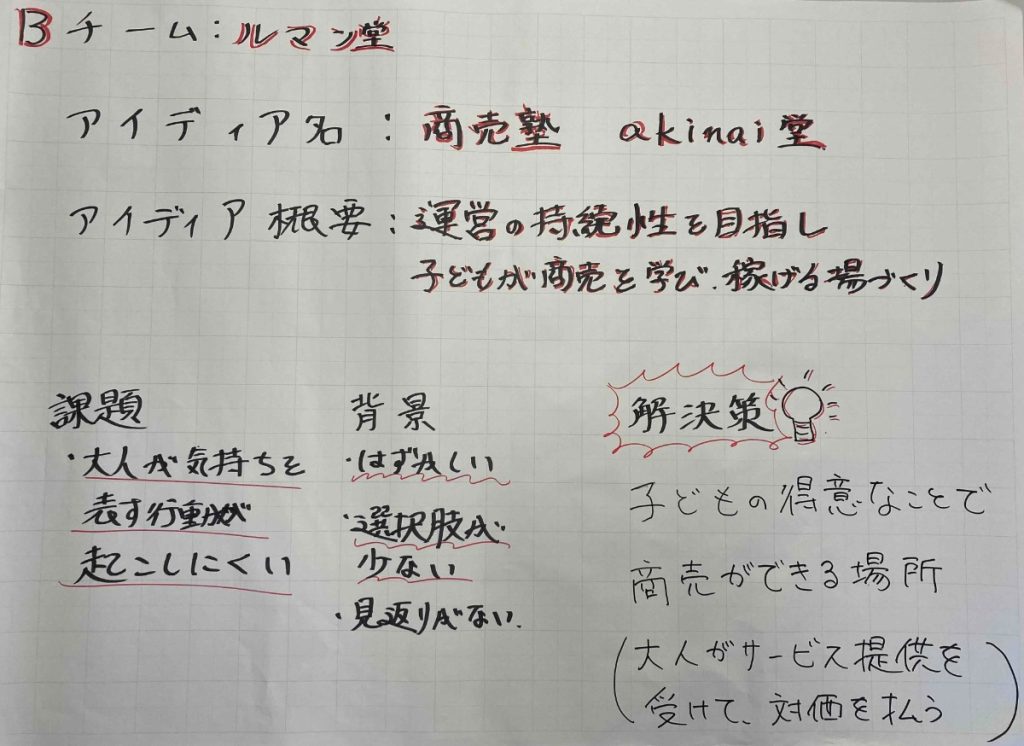 Bチーム：ルマン堂
アイディア名：商売塾 akinai堂
アイディア概要：運営の持続性を目指し
子どもが商売を学び、稼げる場づくり
課題
・大人が気持ちを
表す行動が
起こしにくい
背景
・はずかしい
・選択肢が
少ない
・見返りがない.
解決策
子どもの得意なことで
商売ができる場所
(大人がサービス提供を
受けて、対価を払う)